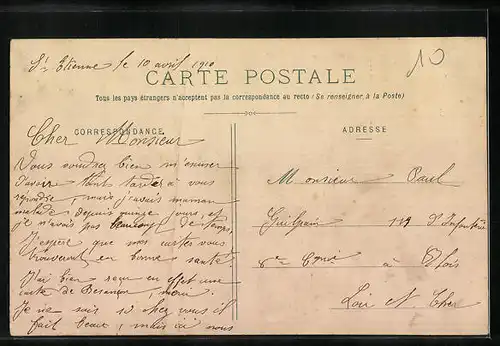 St Etienne le 10 avril 1910
10
CARTE POSTALE
Tous les pays étrangers n'acceptent pas la correspondance au recto (Se renseigner à la Poste)
CORRESPONDANCE
Cher Monsieur
Vous voudrez bien m'excuser
d'avoir tant tarder à vous
repondre, mais j'avais maman
malade depuis quinze jours, et
je n'avais pas beaucoup de temps,
J'espère que mes cartes vous
trouveront en bonne santé.
J'ai bien reçu en effet une
carte de Besançon, merci.
Je ne sais si chez vous il
fait beau, mais ici nous
ADRESSE
Monsieur Paul
113 d'Infanterie
8me Cgnie à Blois
Loir et Cher